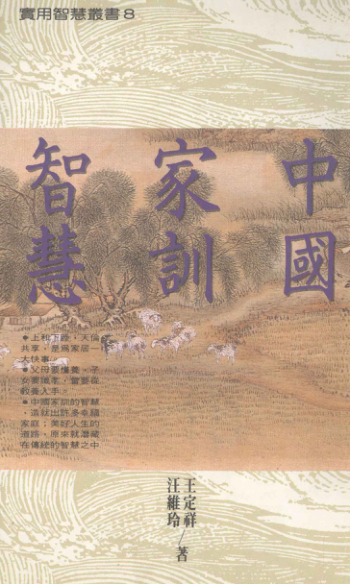 實用智慧叢書8
中國
家訓
智慧
◆上和下睦，天倫
共享，是為家居一
大快事。
◆父母要 養，子
女要 ，當要從
教養入手。
◆中國家訓的智慧
，造就出許多
家庭；美好人生的
道路，原來就潛藏
在傳統的智慧之中
王定祥
汪維玲／著